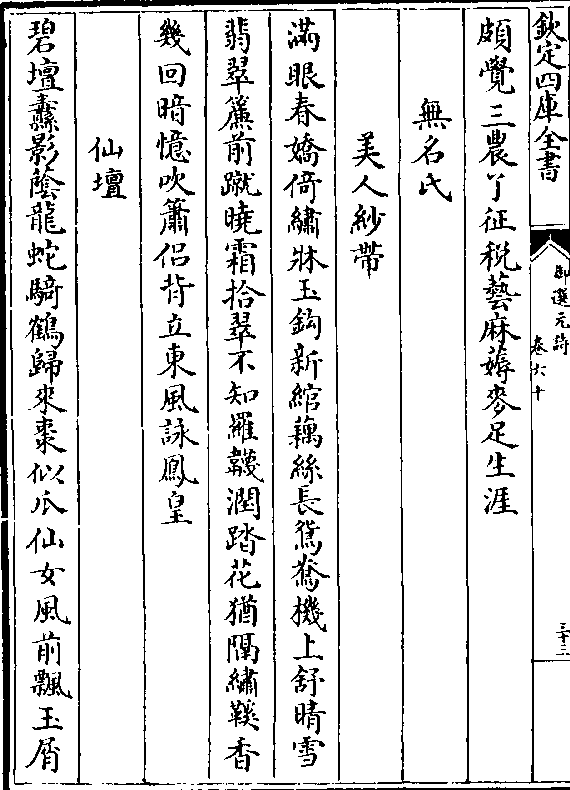 欽定四庫全書
御選元詩
卷六十
三十三
頗覺三農了征税藝麻薅麥足生涯
無名氏
美人紗帶
滿眼春嬌倚繡牀玉鈎新綰藕絲長鴛鴦機上舒晴雪
翡翠簾前蹴曉霜拾翠不知羅韈潤踏花猶隔繡鞵香
幾回暗憶吹簫侶背立東風詠鳳皇
仙壇
碧壇纛影蔭龍蛇騎鶴歸來棗似瓜仙女風前飄玉屑